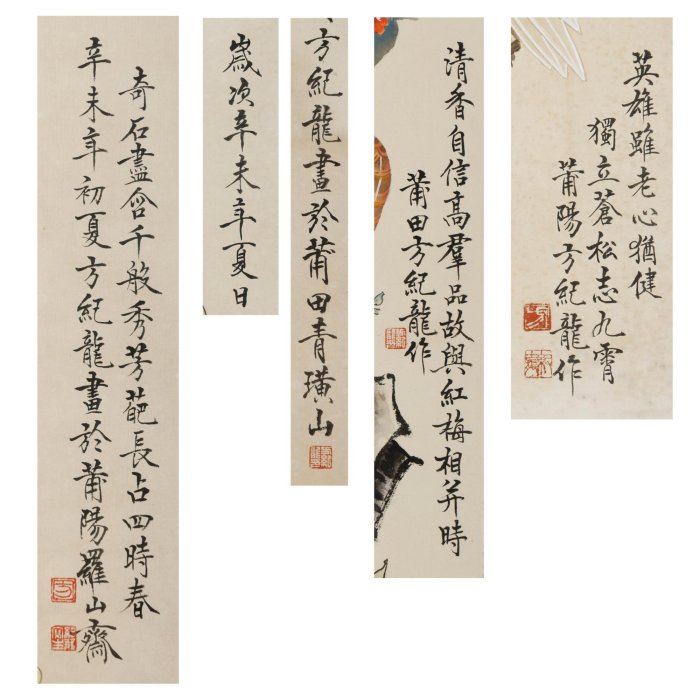 奇石盡含千般秀芳葩長占四時春
辛未年初夏方紀龍畫於莆陽羅山齋
歲次辛未年夏日
方紀龍畫於莆田青璜山
清香自信高羣品故與紅梅相并時
莆田方紀龍作
英雄雖老心猶健
獨立蒼松志九霄
莆陽方紀龍作